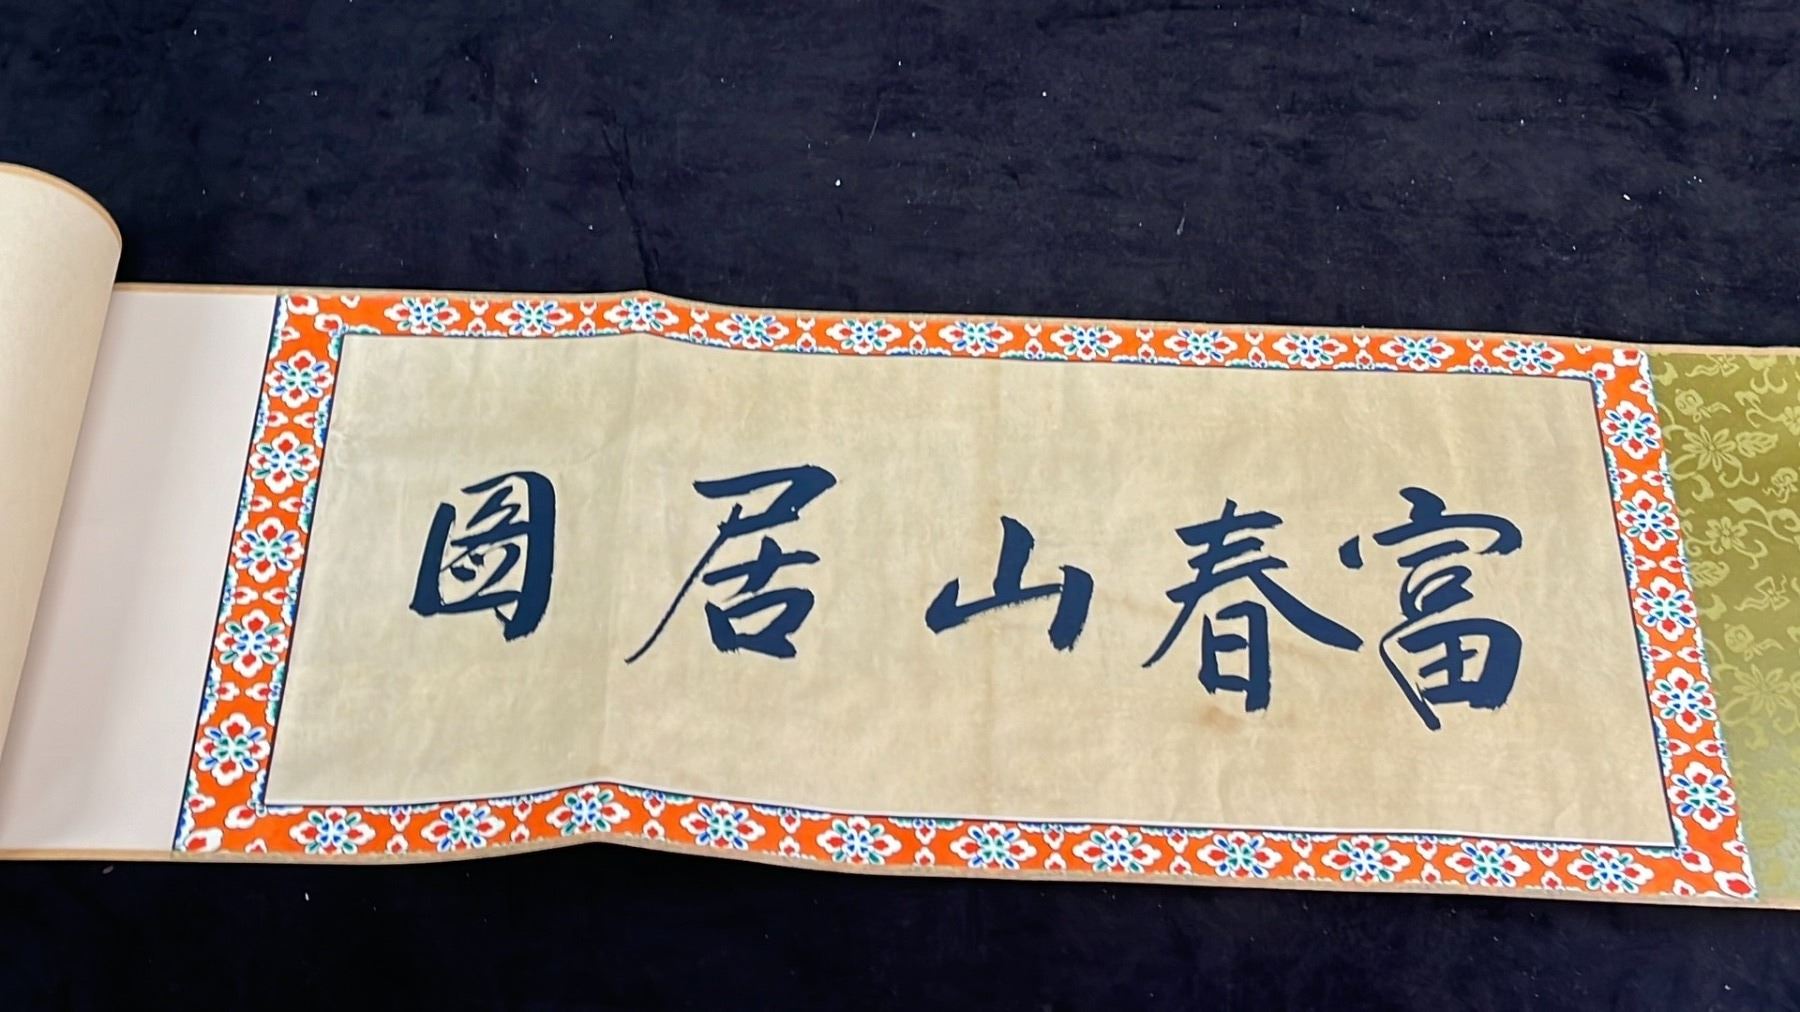 富春山居圖